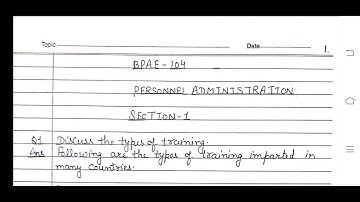 Topic Date 1.
BPAE-104
PERSONNEL ADMINISTRATION
SECTION-1
Q1 Discuss the types of training.
Ans Following are the types of training imparted in
many countries.